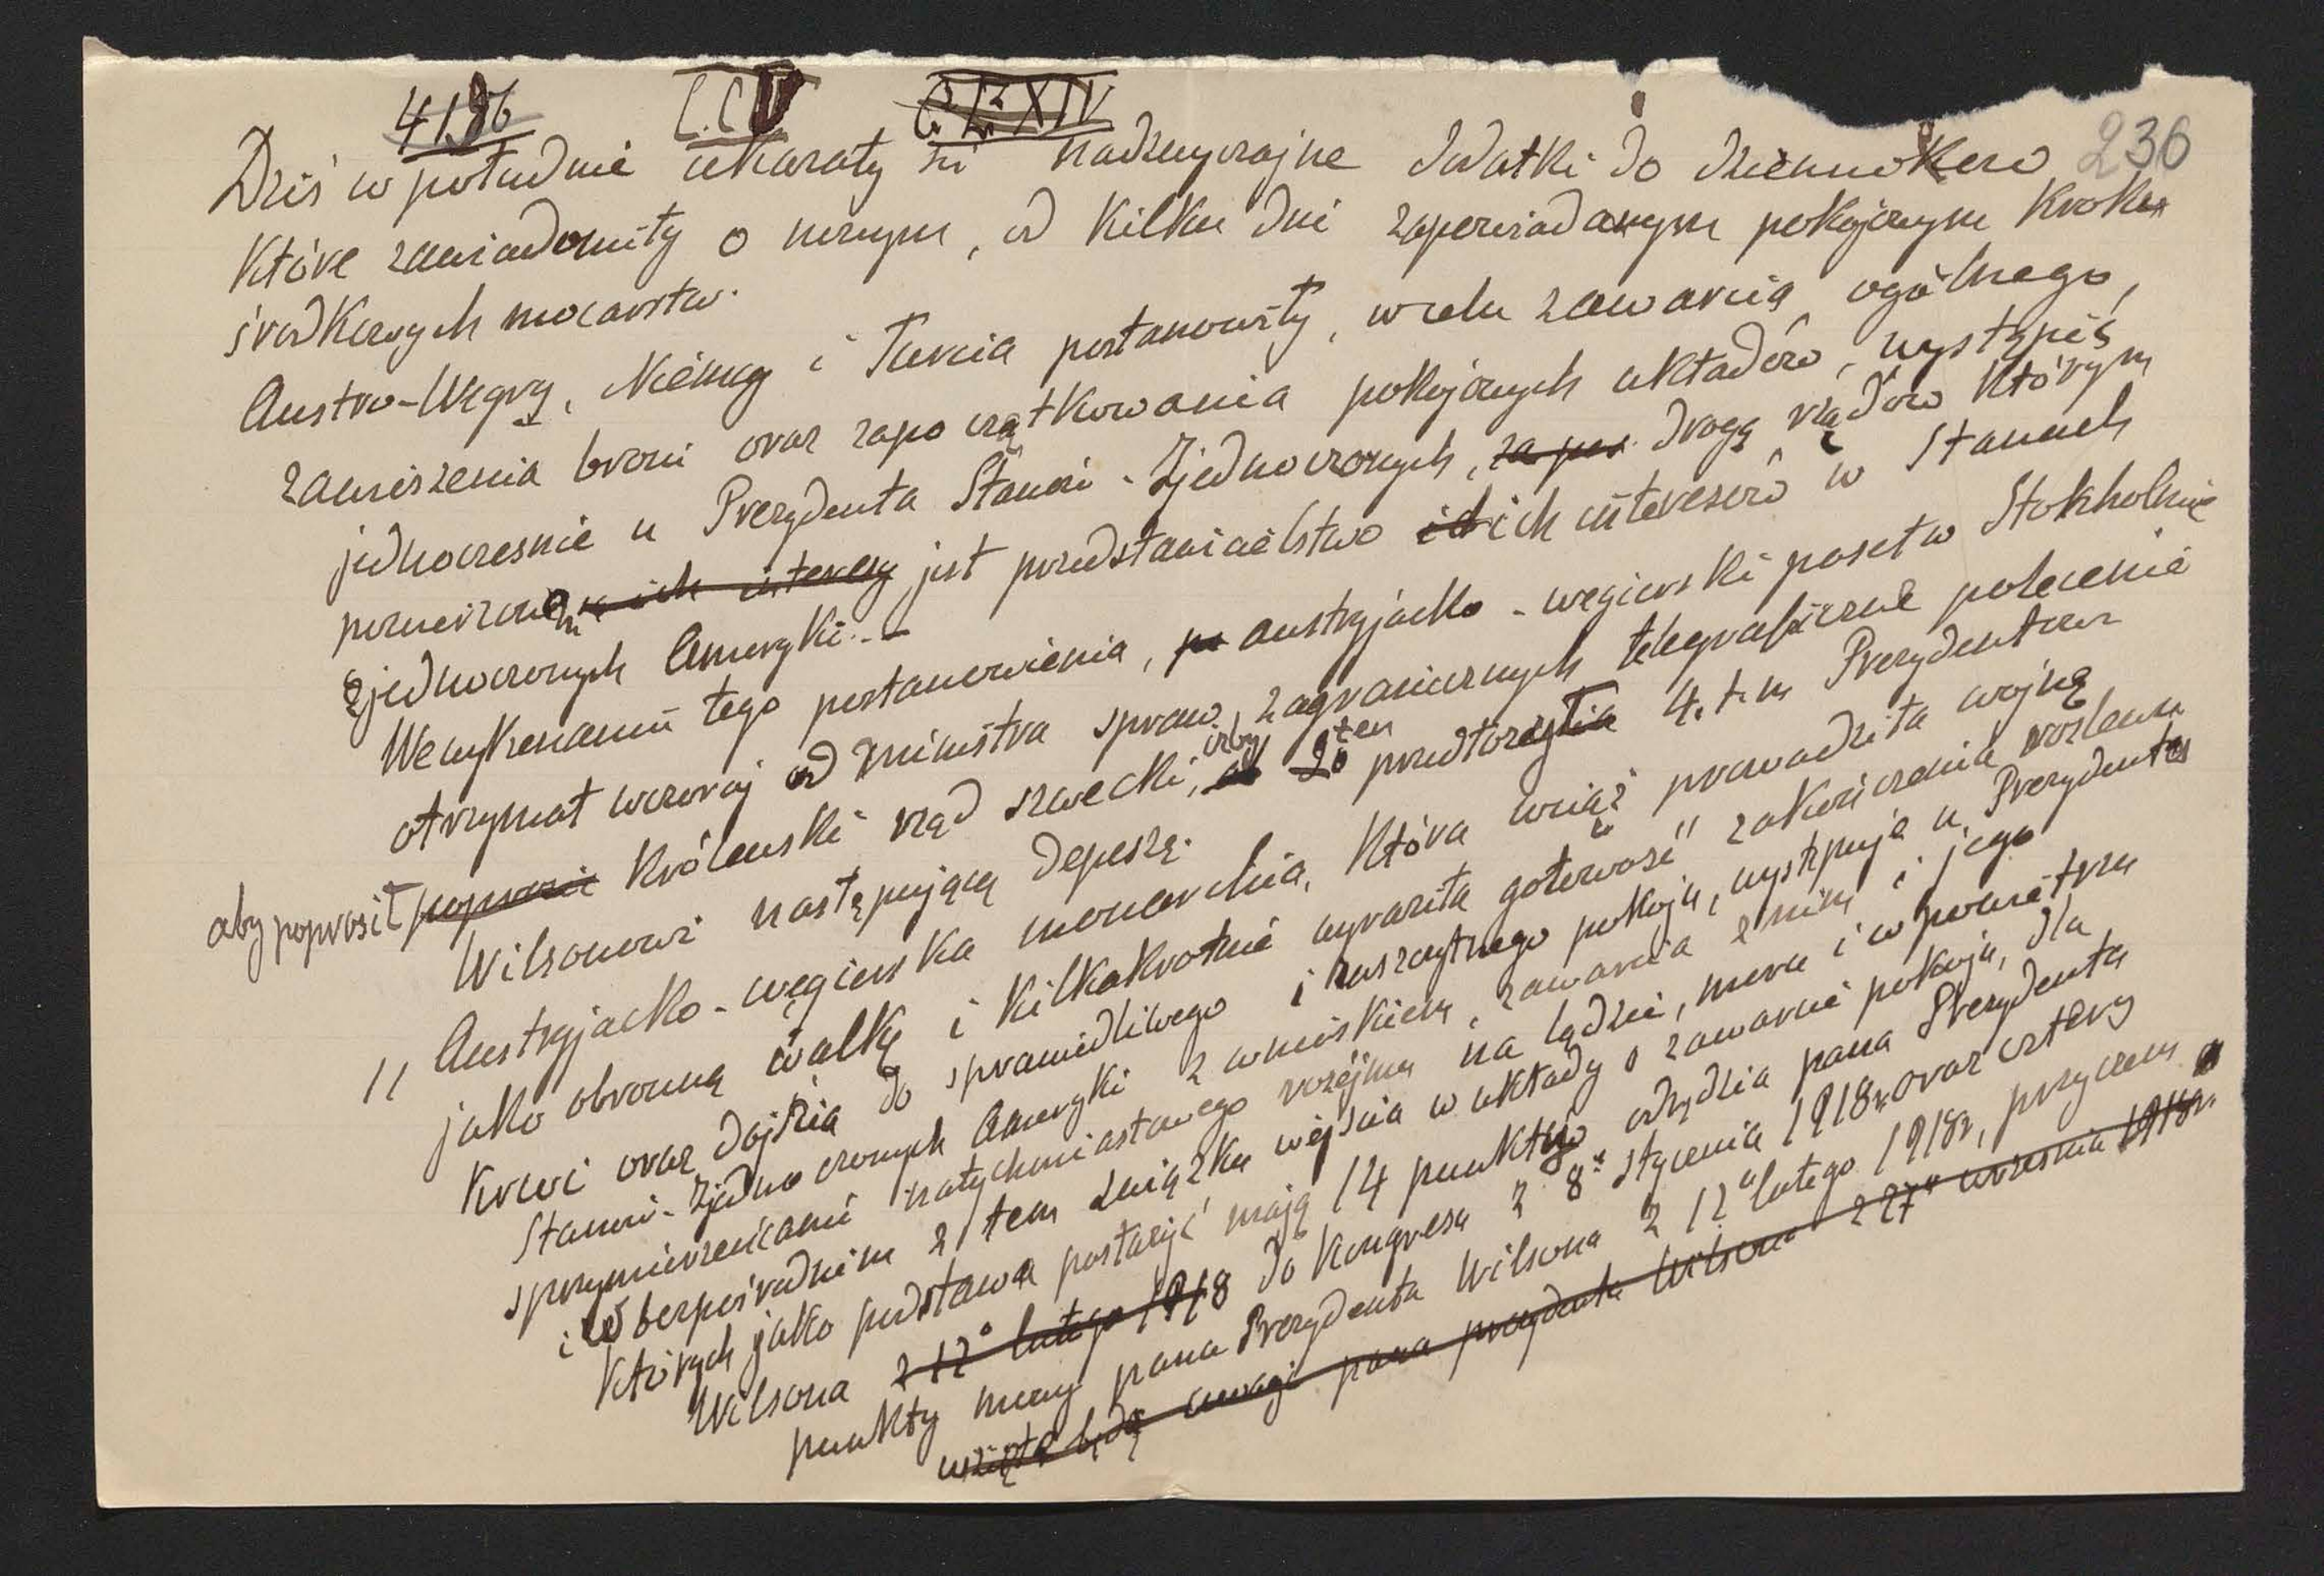 4186 C.CV C.LXXIV
236
Dziś w południe ukazały się nadzwyczajne dodatki do dzienników
które zawiadomiły o nowym, od kilku dni zapowiadanym pokojowym kroku
środkowych mocarstw.
Austro-Węgry, Niemcy i Turcia postanowiły, w celu zawarcia ogólnego,
zawieszenia broni oraz zapoczątkowania pokojowych układów, wystąpić
jednocześnie u Prezydenta Stanów-Zjednoczonych, za pos drogą rządów którym
powierzonem ich interesy jest przedstawicielstwo ich interesów w Stanach
Zjednoczonych Ameryki.-
We wykonaniu tego postanowienia, austryjacko-węgierski poseł w Stokholmie
otrzymał wczoraj od Ministra spraw zagranicznych telegraficzne polecenie
aby poprosił poprosić Królewski rząd szwedzki, żeby ten przedłożył 4. t. m Prezydentowi
Wilsonowi następującą depeszę.
" Austryjacko-węgierska monarchia, która wciąż prowadziła wojnę
jako obronną walkę i kilkakrotnie wyraziła gotowość zakończenia rozlewu
krwi oraz dojścia do sprawiedliwego i zaszczytnego pokoju, występuje u Prezydenta
Stanów-Zjednoczonych Ameryki z wnioskiem, zawarcia z nim i jego
sprzymierzeńcami natychmiastowego rozejmu na lądzie, morzu i w powietrzu
i w bezpośrednim z tem związku wejścia w układy o zawarcie pokoju, dla
których jako podstawa posłużyć mają 14 punktów orędzia pana Prezydenta
Wilsona z 12° lutego 1918 do Kongresu z 8° stycznia 1918r. oraz cztery
punkty mowy pana Prezydenta Wilsona z 12° lutego 1918r, przyczem
wzięte będą uwagi pana prezydenta Wilsona z 27° września 1918r.